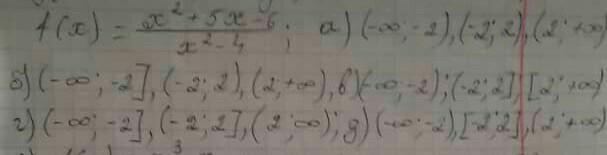 f(x) = (x² + 5x - 6)/(x² - 4); а) (-∞; -2), (-2; 2), (2; +∞)
б) (-∞; -2], (-2; 2), (2; +∞), в) (-∞; -2); (-2; 2], [2; +∞)
г) (-∞; -2], (-2; 2], (2; ∞); д) (-∞; -2), [-2; 2], (2; +∞)